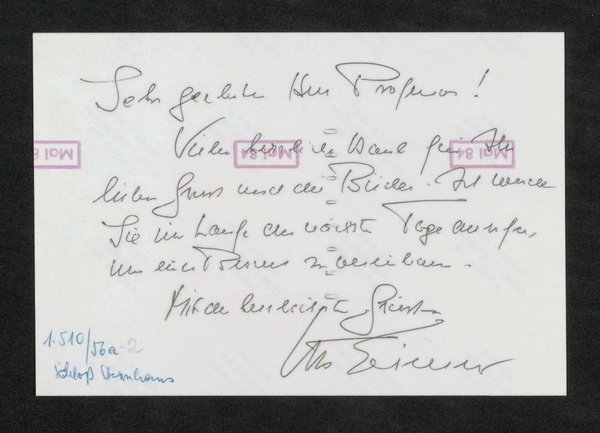 Sehr geehrter Herr Professor!
Vielen herzlichen Dank für Ihr
lieben Gruss und die Bücher. Ich werde
Sie im Laufe der nächsten Tage anrufen,
um einen Termin zu vereinbaren.
Mit den herzlichsten Grüssen
Mai 84
Mai 84
Mai 84
1.510/56a-2
Schloß